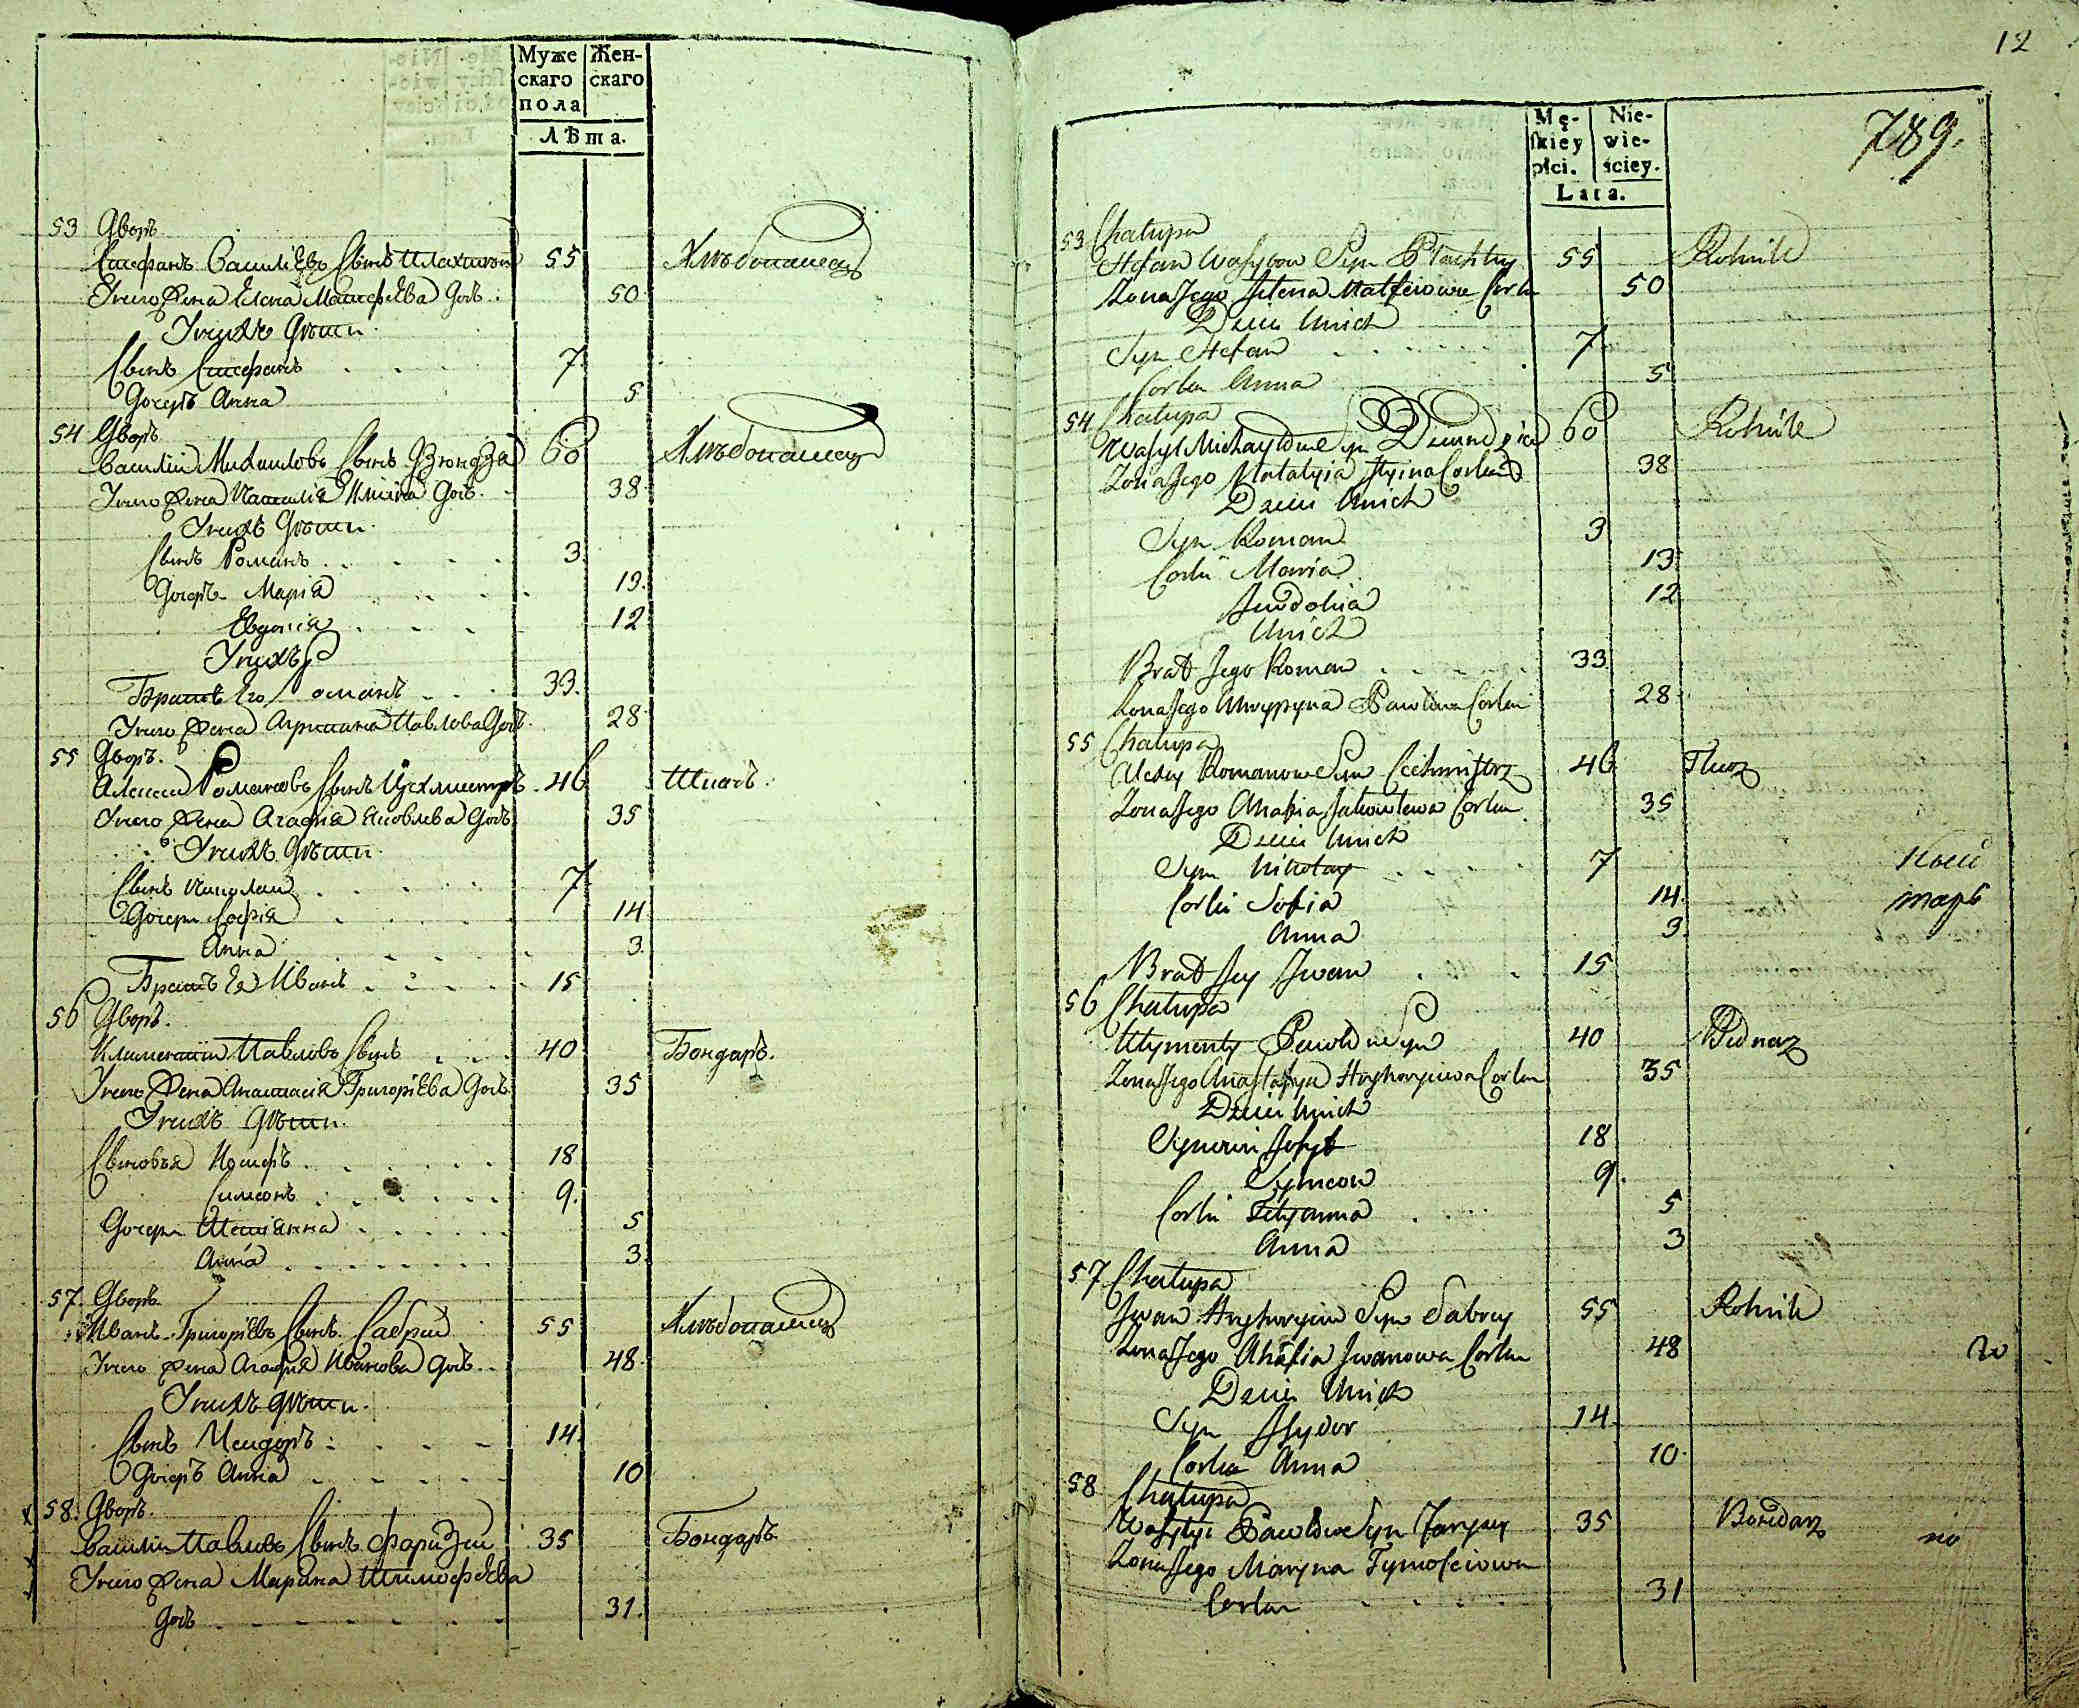 Муже Жен-
скаго скаго
пола
Лѣта.
53 Дворъ
Стефанъ Василіевъ Сынъ Плахтый 55 Хлѣбопашецъ
Унего Жена Елена Матфѣева Доч. 50
Унихъ Дѣти
Сынъ Стефанъ 7.
Дочерь Анна 5
54 Дворъ
Василій Михайловъ Сынъ Дзюндза 60 Хлѣбопашецъ
Унего Жена Наталія Иліина Доч. 38
Унихъ Дѣти
Сынъ Романъ 3
Дочерь Марія 13.
Евдокія 12
Унихъ
Братъ Его Романъ 33.
Унего Жена Агрипина Павлова Доч. 28
55 Дворъ.
Алексей Романовъ Сынъ Цехмистръ 46 Ткачъ.
Унего Жена Агафія Яковлева Доч. 35
Унихъ Дѣти
Сынъ Николай 7
Дочери Софія 14
Анна 3.
Братъ Ея Иванъ 15
56 Дворъ.
Климентій Павловъ Сынъ 40 Бондаръ.
Унего Жена Анастасія Григоріева Доч. 35
Унихъ Дѣти.
Сыновья Иосифъ 18
Симеонъ 9.
Дочери 5
Анна 3.
57. Дворъ
Иванъ Григоріевъ Сынъ Сабрый 55 Хлѣбопашецъ
Унего Жена Агафія Иванова Доч. 48
Унихъ Дѣти.
Сынъ Исидоръ 14.
Дочерь Анна 10
58. Дворъ.
Василій Павловъ Сынъ 35 Бондаръ
Унего Жена Марина Тимофѣева
Доч. 31.
12
789.
Mę- Nie-
skiey wie-
płci. ściey.
Lata.
53 Chałupa
Stefan Wasylow Syn Płachty 55 Rolnik
Zona Jego Jelena Matfeiowa Corka 50
Dzieci Unich
Syn Stefan 7
Corka Anna 5
54 Chałupa
Wasyl Michayłow Syn 60 Rolnik
Zona Jego Natalyia Ilyina Corka 38
Dzieci Unich
Syn Roman 3
Corki Maria 13
Jewdokia 12
Unich
Brat Jego Roman 33
Zona Jego Pawłowa Corka 28
55 Chałupa
Alexy Romanow Syn Cechmistrz 46 Tkacz
Zona Jego Ahafia Jakowlewa Corka 35
Dzieci Unich
Syn Nikołay 7
Corki Sofia 14.
Anna 3.
Brat Jey Iwan 15
тарь
56 Chałupa
Klymenty Pawłow Syn 40 Bednarz
Zona Jego Anastasya Hryhoryiewa Corka 35
Dzieci Unich
Synowie Josyf 18
Symeon 9.
Corki 5
Anna 3
57 Chałupa
Iwan Hryhoryiew Syn Sabrey 55 Rolnik
Zona Jego Ahafia Iwanowa Corka 48
Dzieci Unich
Syn Isydor 14.
Corka Anna 10
58 Chałupa
Wasylyi Pawłow Syn 35 Bondarz
Zona Jego Maryna Tymofeiowa
Corka 31